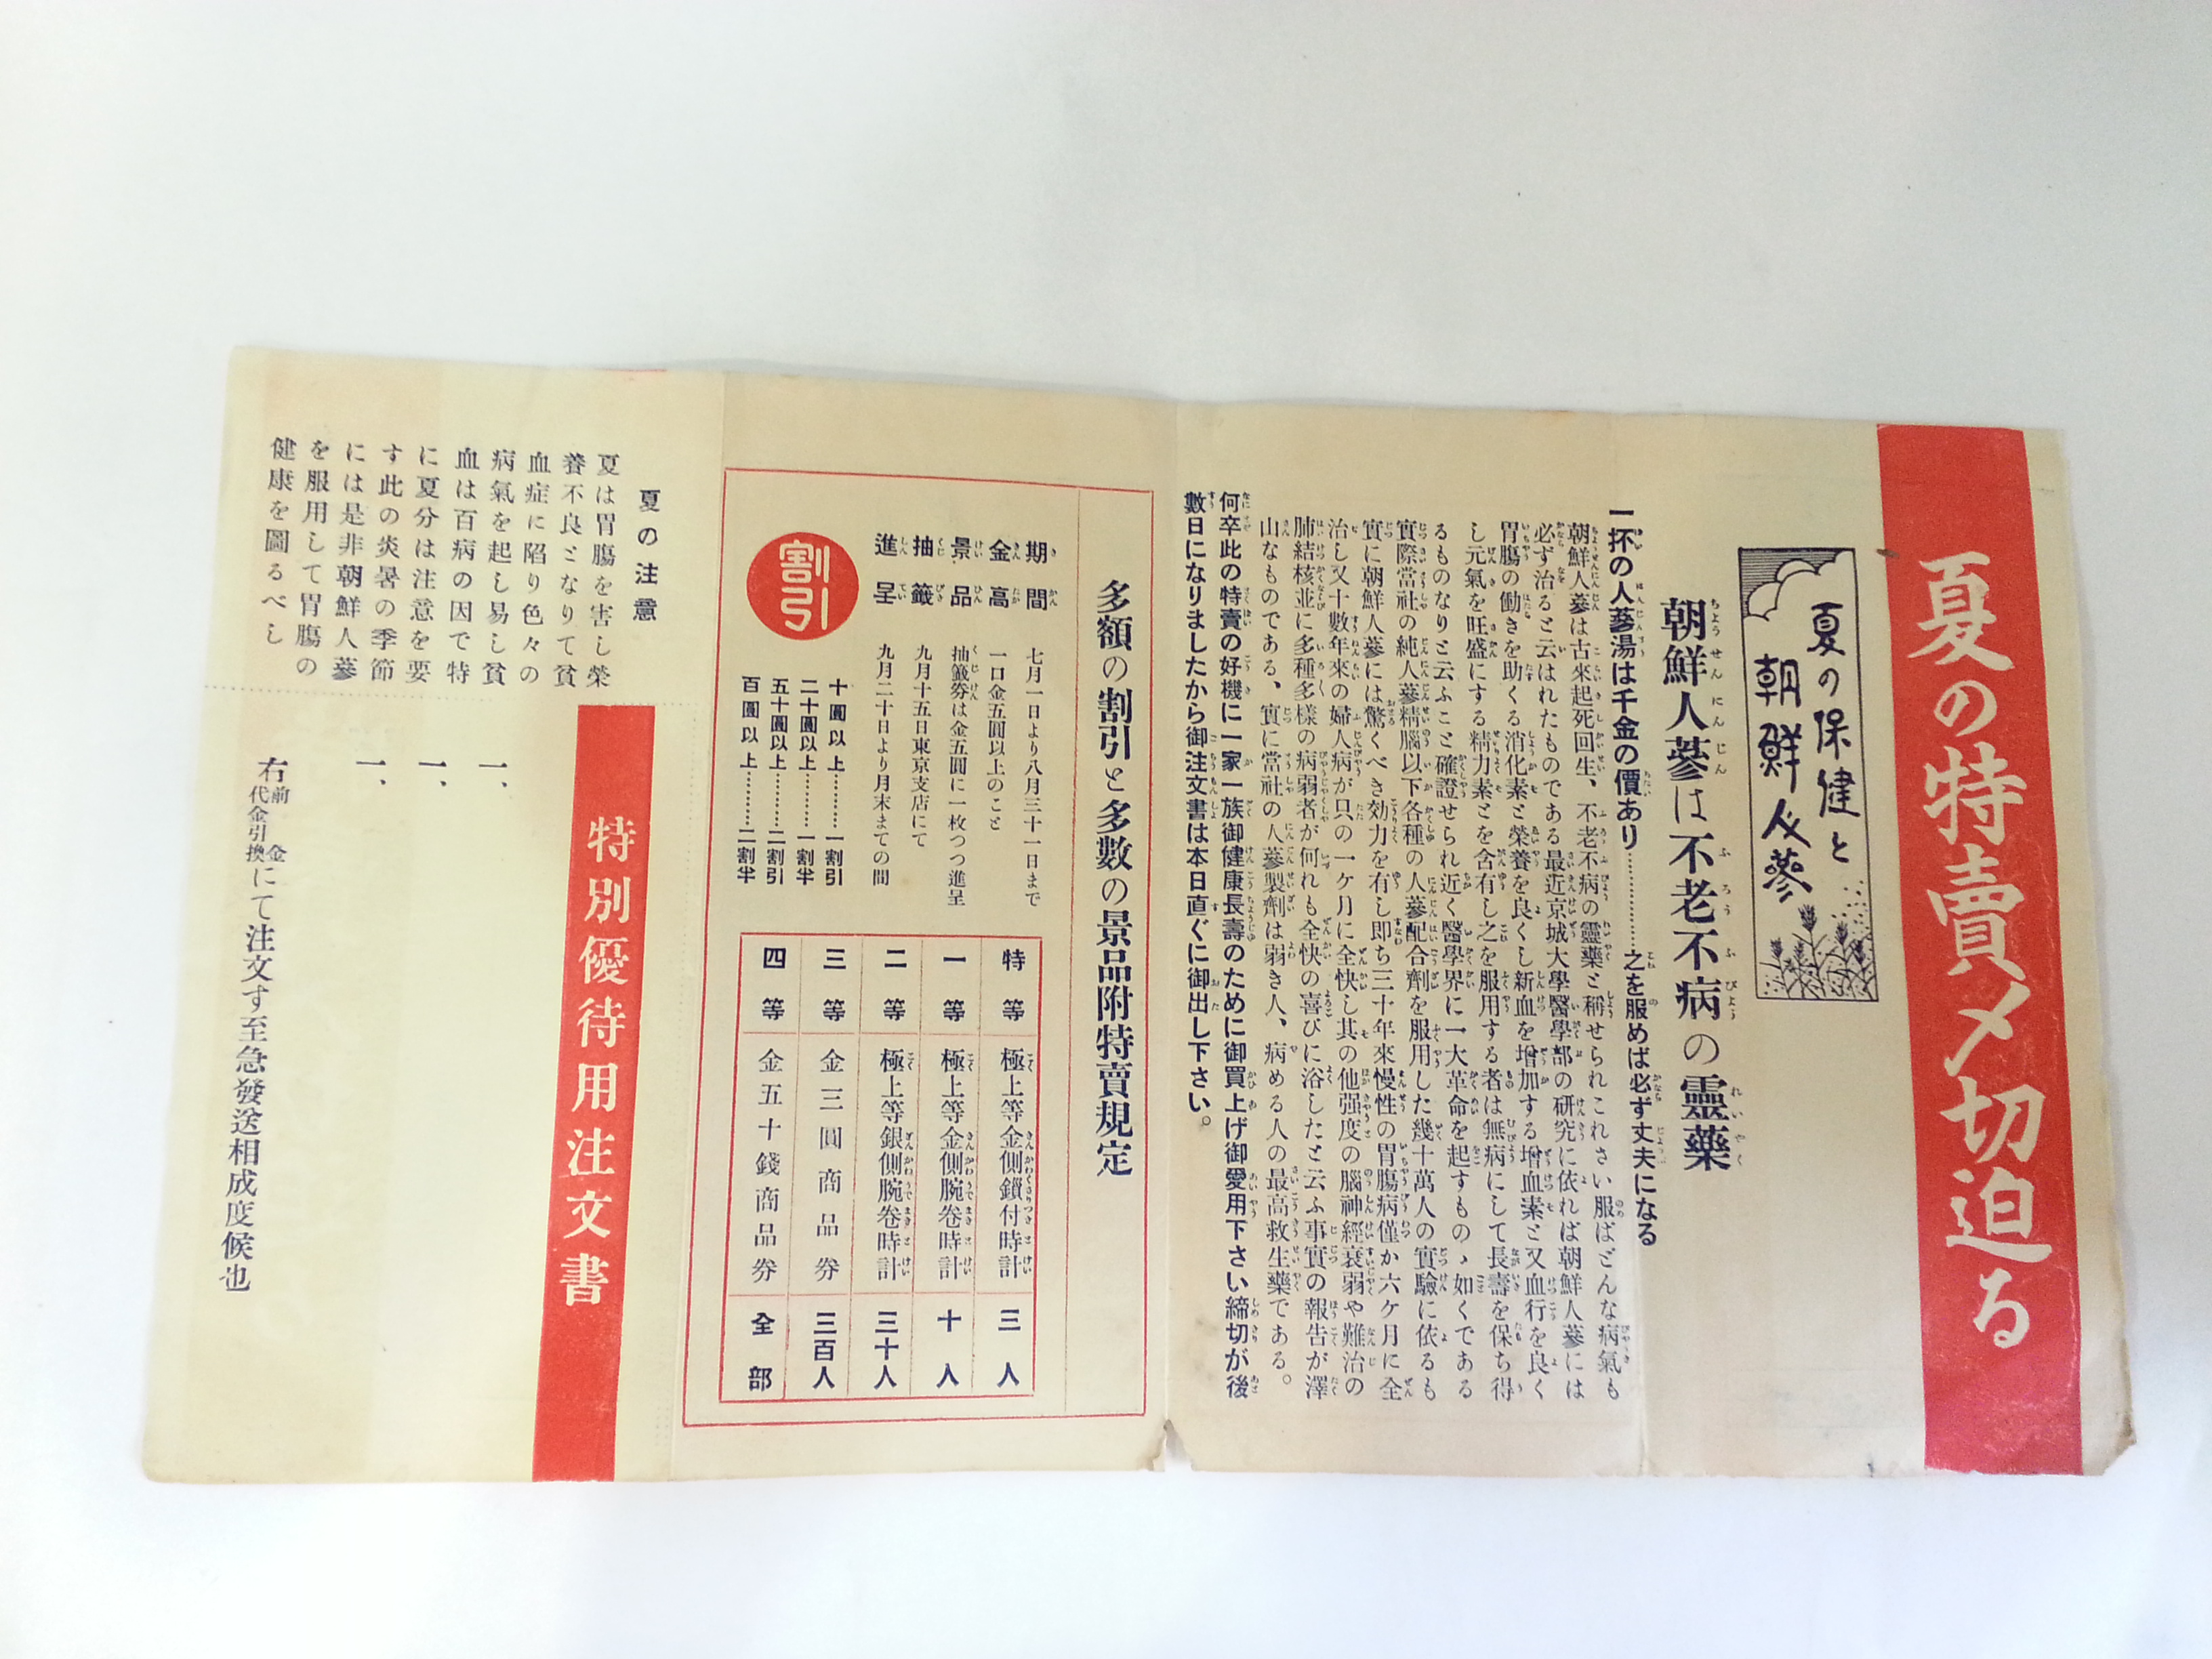 夏の特賣〆切迫る
夏の保健と
朝鮮人蔘
朝鮮人蔘は不老不病の靈藥
一抔の人蔘湯は千金の價あり…………之を服めば必ず丈夫になる
朝鮮人蔘は古來起死回生、不老不病の靈藥と稱せられこれさい服ばどんな病氣も
必ず治ると云はれたものである最近京城大學醫學部の研究に依れば朝鮮人蔘には
胃腸の働きを助くる消化素と榮養を良くし新血を增加する增血素と又血行を良く
し元氣を旺盛にする精力素とを含有し之を服用する者は無病にして長壽を保ち得
るものなりと云ふこと確證せられ近く醫學界に一大革命を起すものゝ如くである
實際當社の純人蔘精腦以下各種の人蔘配合劑を服用した幾十萬人の實驗に依るも
實に朝鮮人蔘には驚くべき効力を有し即ち三十年來慢性の胃腸病僅か六ケ月に全
治し又十數年來の婦人病が只の一ケ月に全快し其の他强度の腦神經衰弱や難治の
肺結核並に多種多樣の病弱者が何れも全快の喜びに浴したと云ふ事實の報告が澤
山なものである、實に當社の人蔘製劑は弱き人、病める人の最高救生藥である。
何卒此の特賣の好機に一家一族御健康長壽のために御買上げ御愛用下さい締切が後
數日になりましたから御注文書は本日直ぐに御出し下さい。
多額の割引と多數の景品附特賣規定
期間 七月一日より八月三十一日まで
金高 一口金五圓以上のこと
景品 抽籤券は金五圓に一枚つつ進呈
抽籤 九月十五日東京支店にて
進呈 九月二十日より月末までの間
割引
十圓以上…………一割引
二十圓以上…………一割半
五十圓以上…………二割引
百圓以上…………二割半
特等 極上等金側鎖付時計 三人
一等 極上等金側腕卷時計 十人
二等 極上等銀側腕卷時計 三十人
三等 金三圓商品券 三百人
四等 金五十錢商品券 全部
夏の注意
夏は胃腸を害し榮
養不良となりて貧
血症に陷り色々の
病氣を起し易し貧
血は百病の因で特
に夏分は注意を要
す此の炎暑の季節
には是非朝鮮人蔘
を服用して胃腸の
健康を圖るべし
特別優待用注文書
一、
一、
一、
右前金
代金引換にて注文す至急發送相成度候也